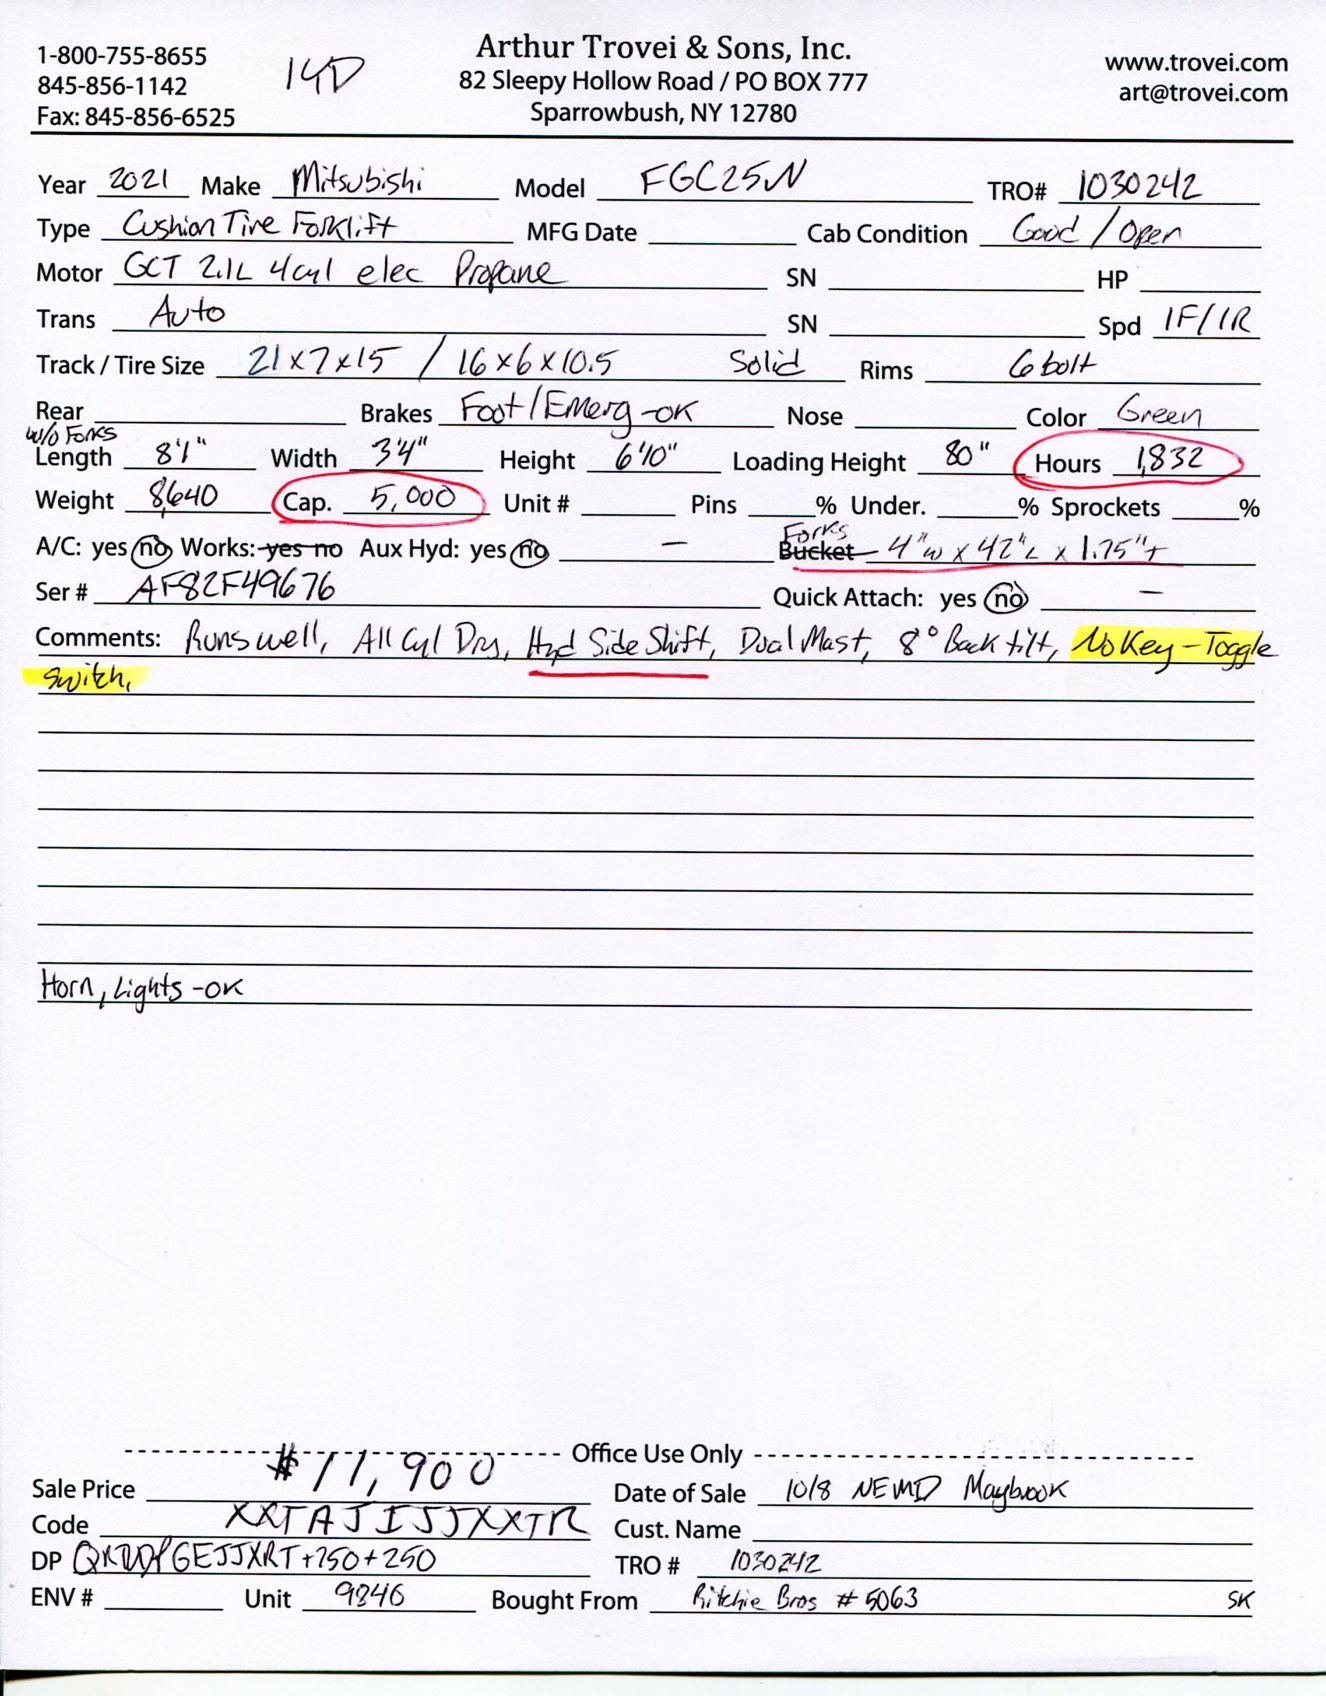 1-800-755-8655
845-856-1142
Fax: 845-856-6525
14D
Arthur Trovei & Sons, Inc.
82 Sleepy Hollow Road / PO BOX 777
Sparrowbush, NY 12780
www.trovei.com
art@trovei.com
Year 2021 Make Mitsubishi Model FGC25N TRO# 1030242
Type Cushion Tire Forklift MFG Date Cab Condition Good / Open
Motor GCT 2.1L 4cyl elec Propane SN HP
Trans Auto SN Spd 1F/1R
Track / Tire Size 21x7x15 / 16x6x10.5 Solid Rims 6 bolt
Rear Brakes Foot/Emerg-OK Nose Color Green
w/o Forks
Length 8'1" Width 3'4" Height 6'10" Loading Height 80" Hours 1,832
Weight 8,640 Cap. 5,000 Unit # Pins % Under. % Sprockets %
Forks
A/C: yes no Works: yes no Aux Hyd: yes no — Bucket 4"w x 42"L x 1.75"T
Ser # AF82F49676 Quick Attach: yes no —
Comments: Runs well, All Cyl Dry, Hyd Side Shift, Dual Mast, 8° Back tilt, No Key - Toggle
switch,
Horn, Lights - OK
Office Use Only
Sale Price $11,900 Date of Sale 10/8 NEMD Maybrook
Code XXTAJISJJXXTR Cust. Name
DP +750+250 TRO # 1030242
ENV # Unit 9846 Bought From Ritchie Bros #5063 SK